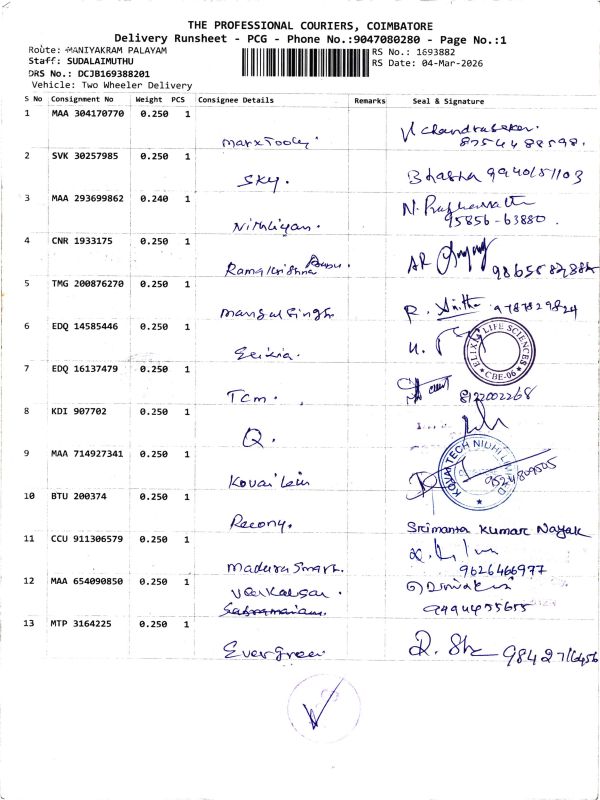 THE PROFESSIONAL COURIERS, COIMBATORE
Delivery Runsheet - PCG - Phone No.:9047080280 - Page No.:1
Route: MANIYAKRAM PALAYAM
Staff: SUDALAIMUTHU
DRS No.: DCJB169388201
Vehicle: Two Wheeler Delivery
RS No.: 1693882
RS Date: 04-Mar-2026
S No Consignment No Weight PCS Consignee Details Remarks Seal & Signature
1 MAA 304170770 0.250 1
Marx Tooley. V Chandrasekar. 8754488598.
2 SVK 30257985 0.250 1
SKY. Bhasha 9940151103
3 MAA 293699862 0.240 1
Nithliyan. 95856-63880.
4 CNR 1933175 0.250 1
Ramakrishna AR
5 TMG 200876270 0.250 1
Mangal Singh R. 9787829824
6 EDQ 14585446 0.250 1
ELIXIR LIFE SCIENCES CBE-06
7 EDQ 16137479 0.250 1
Tcm. 8122002268
8 KDI 907702 0.250 1
Q.
9 MAA 714927341 0.250 1
Kovai KOVAI TECH NIDHI LIMITED 9524809505
10 BTU 200374 0.250 1
Recony. Srimanta Kumar Nayak
11 CCU 911306579 0.250 1
Madura Smart. 9626466977
12 MAA 654090850 0.250 1
9994455655
13 MTP 3164225 0.250 1
Evergreen